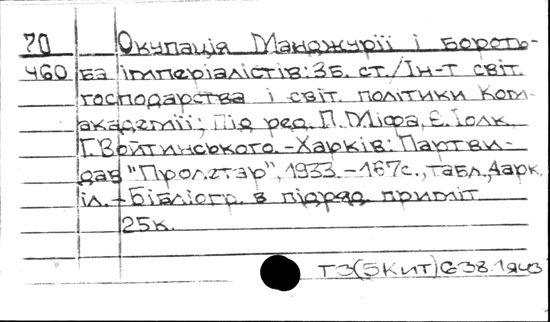 70 Окупація Манджурії і бороть-
460 ба імперіалістів: Зб. ст./Ін-т світ.
господарства і світ. політики Ком-
академії; Під ред. П. Міфа, Є. Іолк,
Г. Войтинського.-Харків: Партви-
дав "Пролетар", 1933.-167с., табл., 4арк.
іл.-Бібліогр. в підряд. приміт.
25к.
Т3(5Кит)6-38.1я43